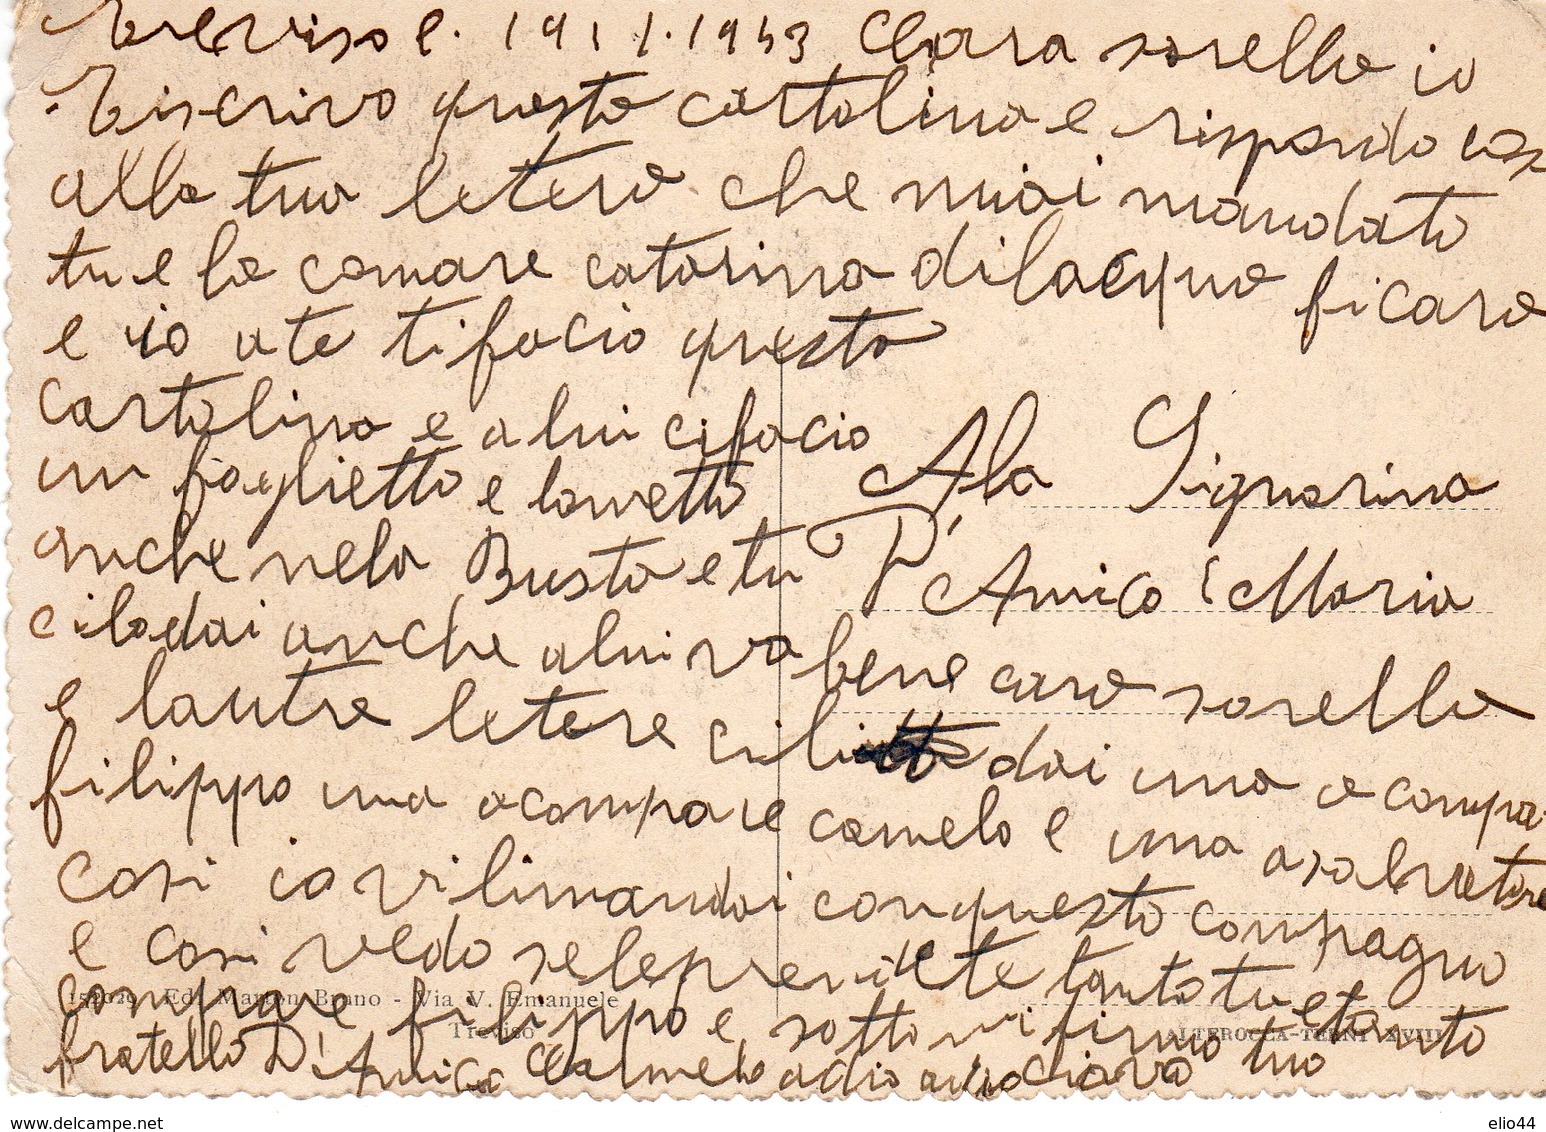 Treviso l. 19 1 1.1943 Chara sorella io
tiscrivo questa cartolina e rispondo
alla tua letera che miai mandato
tu e la comare catarina dilacqua ficara
e io ate tifacio questa
cartolina e alui cifacio
un foglietto e lometto
anche nela Busta e tu
cilodai anche alui va bene cara sorella
e lautre letere cili dai una a compa
filippo una acompare camelo e una asalvatore
cosi io vilimandai conquesto compagno
e cosi vedo selepvendete tanto tu e tanto
compare filippo e sotto mi firmo tuo
fratello D'Amico Calmelo adio ciava
Ala Signorina
D'Amico Maria
Ed. Marton Bruno - Via V. Emanuele
Treviso
ALTEROCCA-TERNI XVIII
www.delcampe.net
elio44